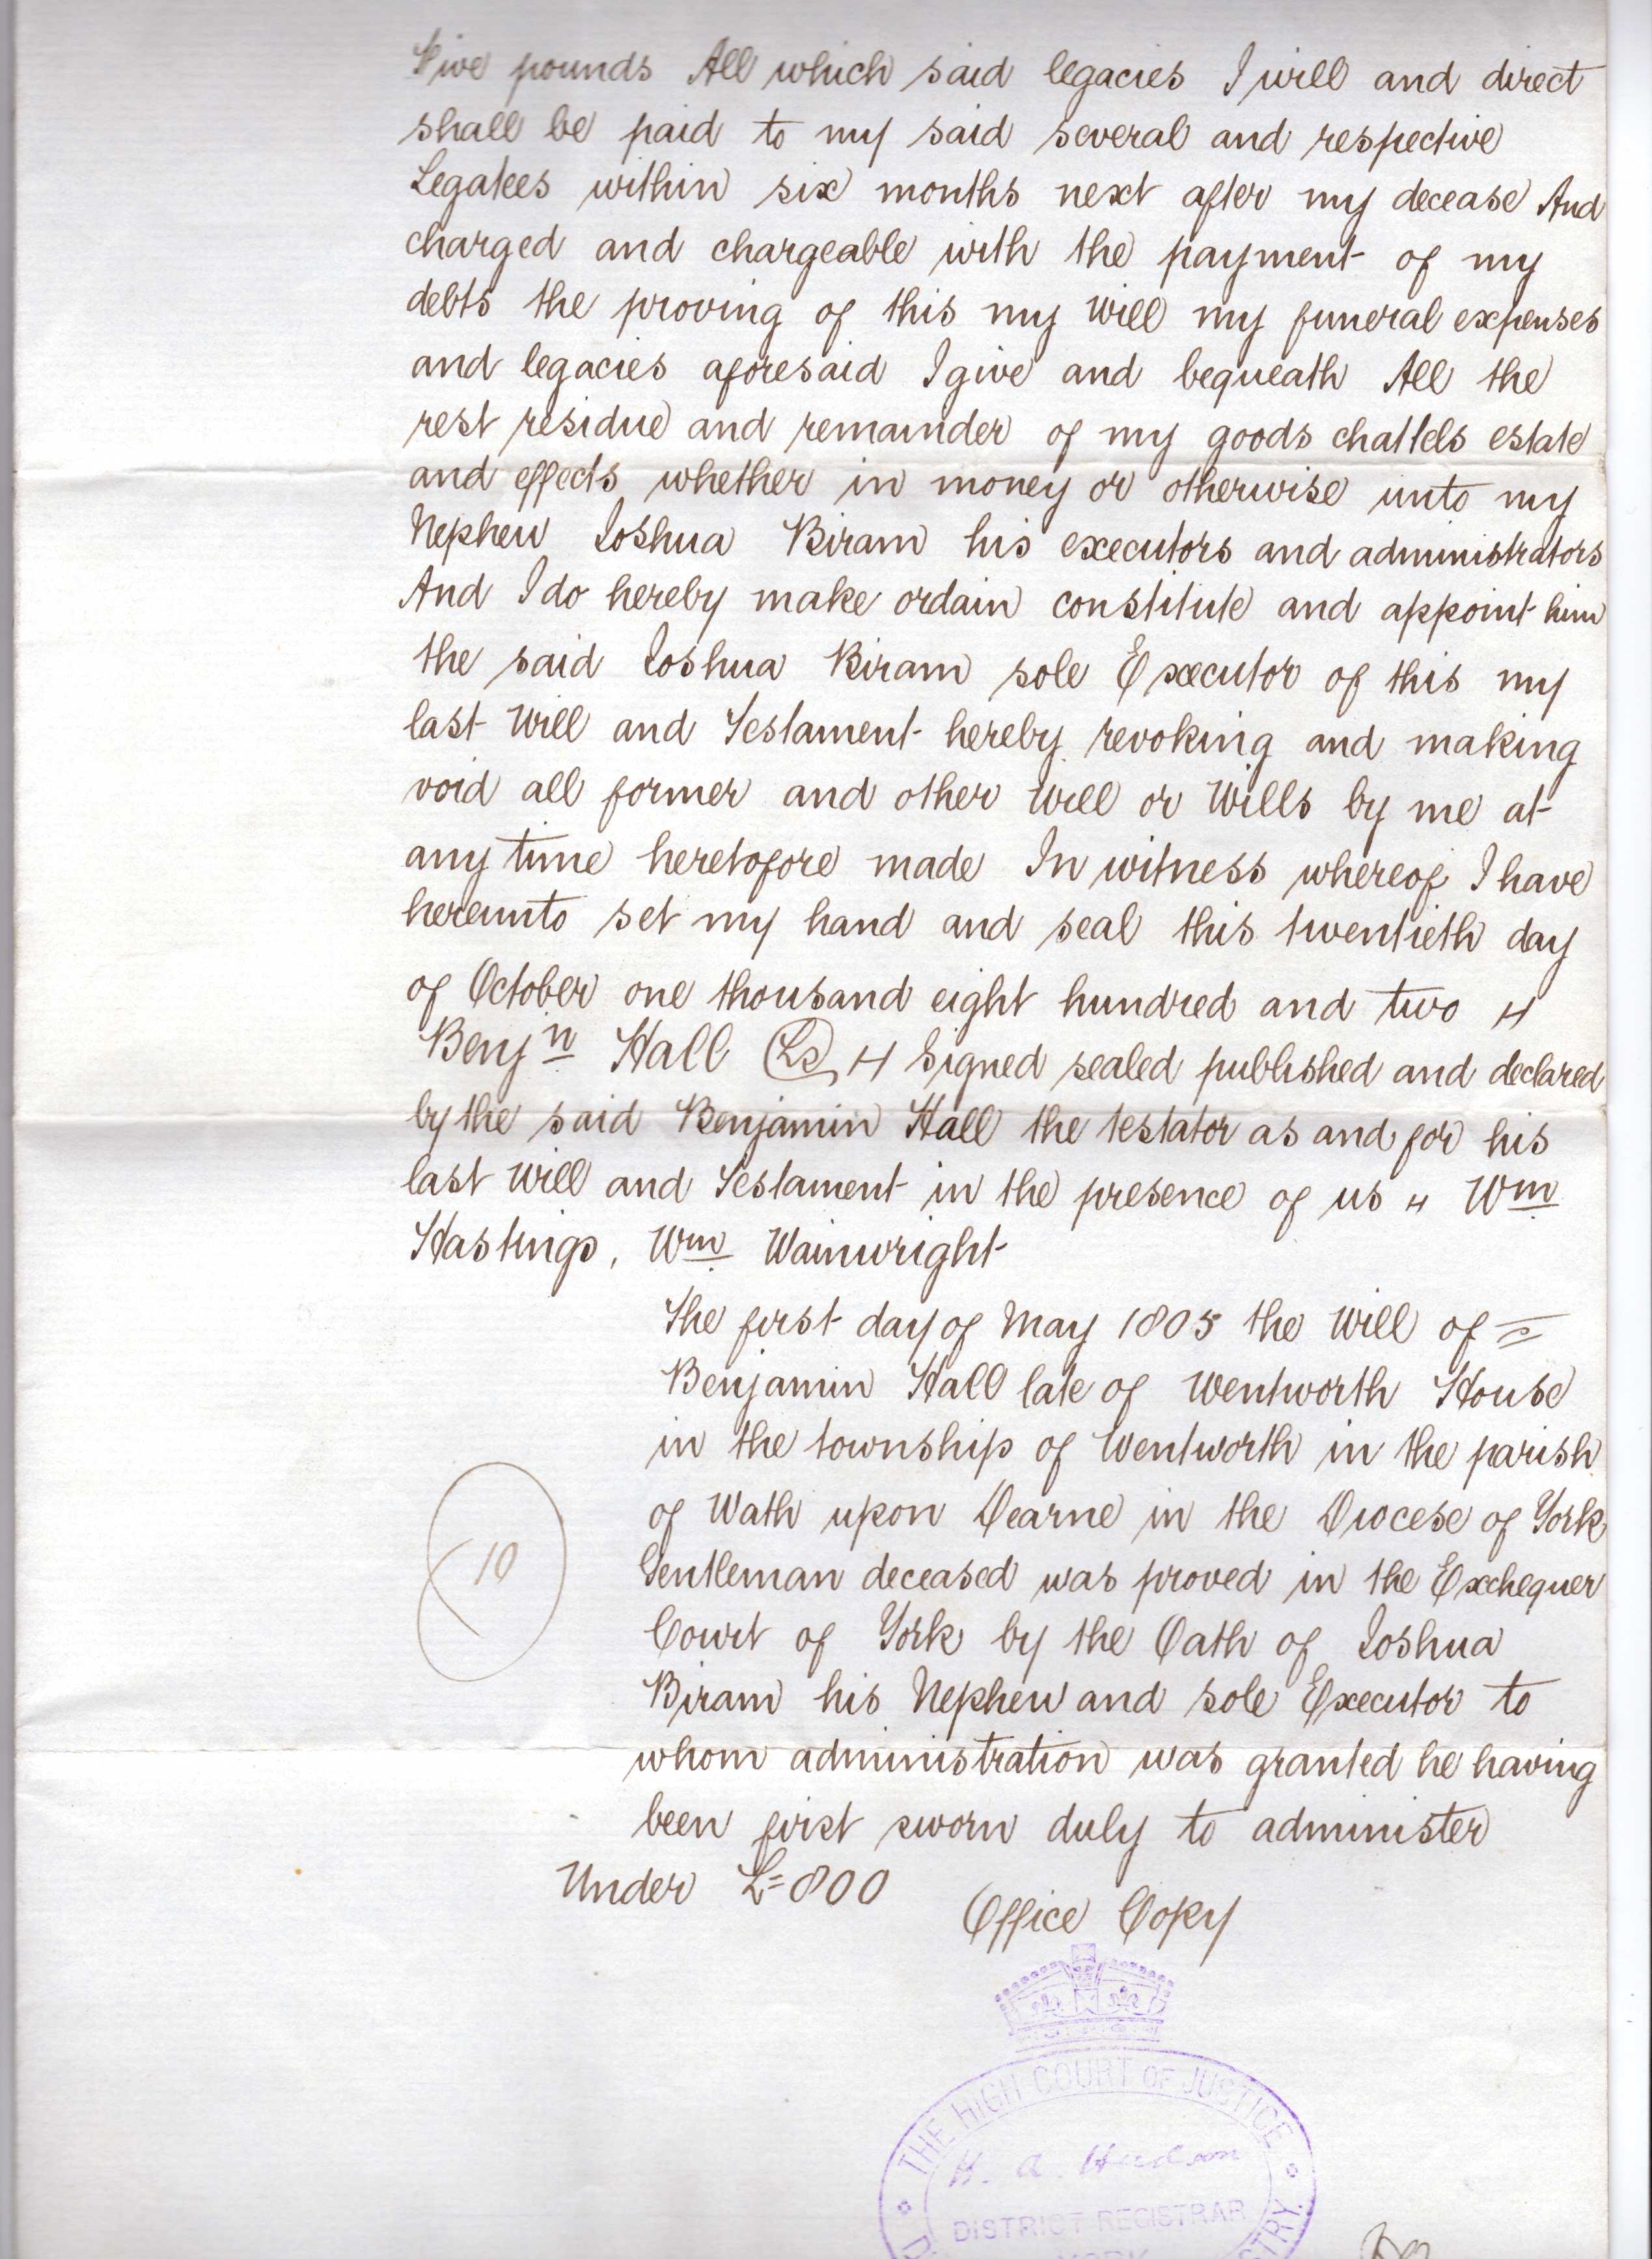 Five pounds All which said legacies I will and direct
shall be paid to my said several and respective
Legatees within six months next after my decease And
charged and chargeable with the payment of my
debts the proving of this my Will my funeral expenses
and legacies aforesaid I give and bequeath All the
rest residue and remainder of my goods chattels estate
and effects whether in money or otherwise unto my
Nephew Joshua Biram his executors and administrators
And I do hereby make ordain constitute and appoint him
the said Joshua Biram sole Executor of this my
last Will and Testament hereby revoking and making
void all former and other Will or Wills by me at
any time heretofore made In witness whereof I have
hereunto set my hand and seal this twentieth day
of October one thousand eight hundred and two
Benjn Hall LS Signed sealed published and declared
by the said Benjamin Hall the testator as and for his
last Will and Testament in the presence of us Wm
Hastings, Wm Wainwright
The first day of May 1805 the Will of
Benjamin Hall late of Wentworth House
in the township of Wentworth in the parish
of Wath upon Dearne in the Diocese of York
Gentleman deceased was proved in the Exchequer
Court of York by the Oath of Joshua
10
Biram his Nephew and sole Executor to
whom administration was granted he having
been first sworn duly to administer
Under £=800
Office Copy
THE HIGH COURT OF JUSTICE
H. A. Hudson
DISTRICT REGISTRAR
YORK